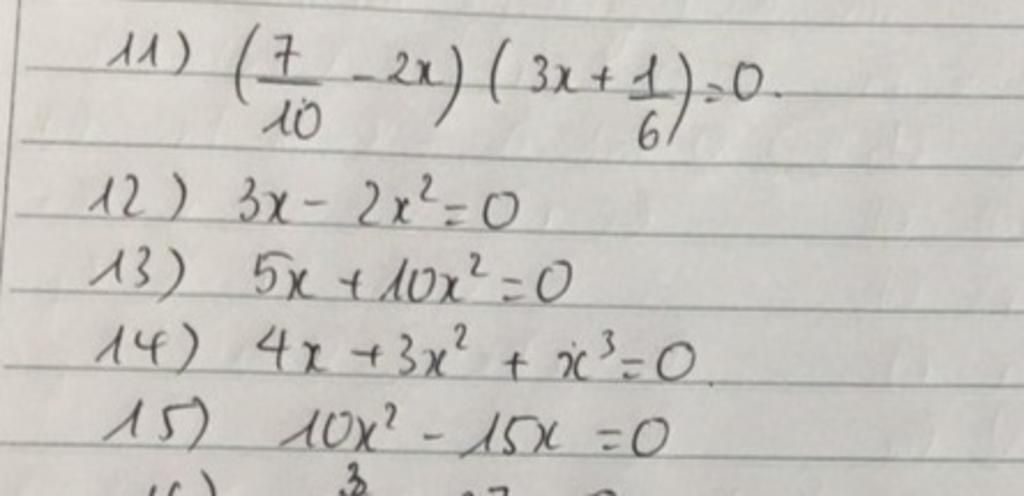 11) (7/10 - 2x) (3x + 1/6) = 0.
12) 3x - 2x² = 0
13) 5x + 10x² = 0
14) 4x + 3x² + x³ = 0.
15) 10x² - 15x = 0